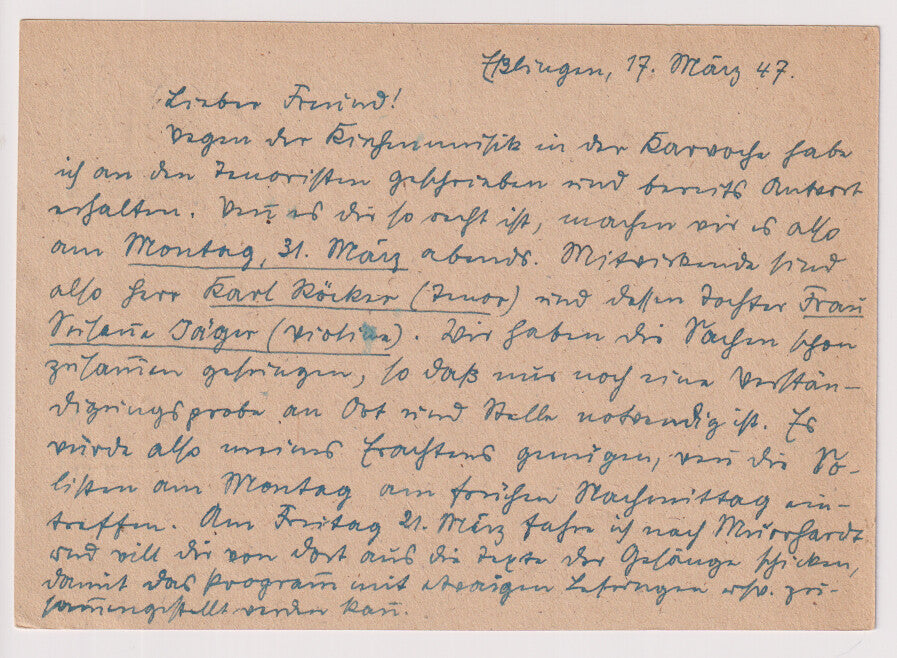 Eßlingen, 17. März 47.
Lieber Freund!
Wegen der Kirchenmusik in der Karwoche habe
ich an den Tenoristen geschrieben und bereits Antwort
erhalten. Wenn̄ es dir so recht ist, machen wir es also
am Montag, 31. März abends. Mitwirkende sind
also Herr Karl Röcker (Tenor) und dessen Tochter Frau
Susan̄e Jäger (Violine). Wir haben die Sachen schon
zusam̄en gesungen, so daß nur noch eine Verstän-
digungsprobe an Ort und Stelle notwendig ist. Es
würde also meines Erachtens genügen, wen̄ die So-
listen am Montag am frühen Nachmittag ein-
treffen. Am Freitag 21. März fahre ich nach Murrhardt
und will dir von dort aus die Texte der Gesänge schicken,
damit das Program̄ mit etwaigen Lesungen usw. zu-
sam̄engestellt werden kan̄.